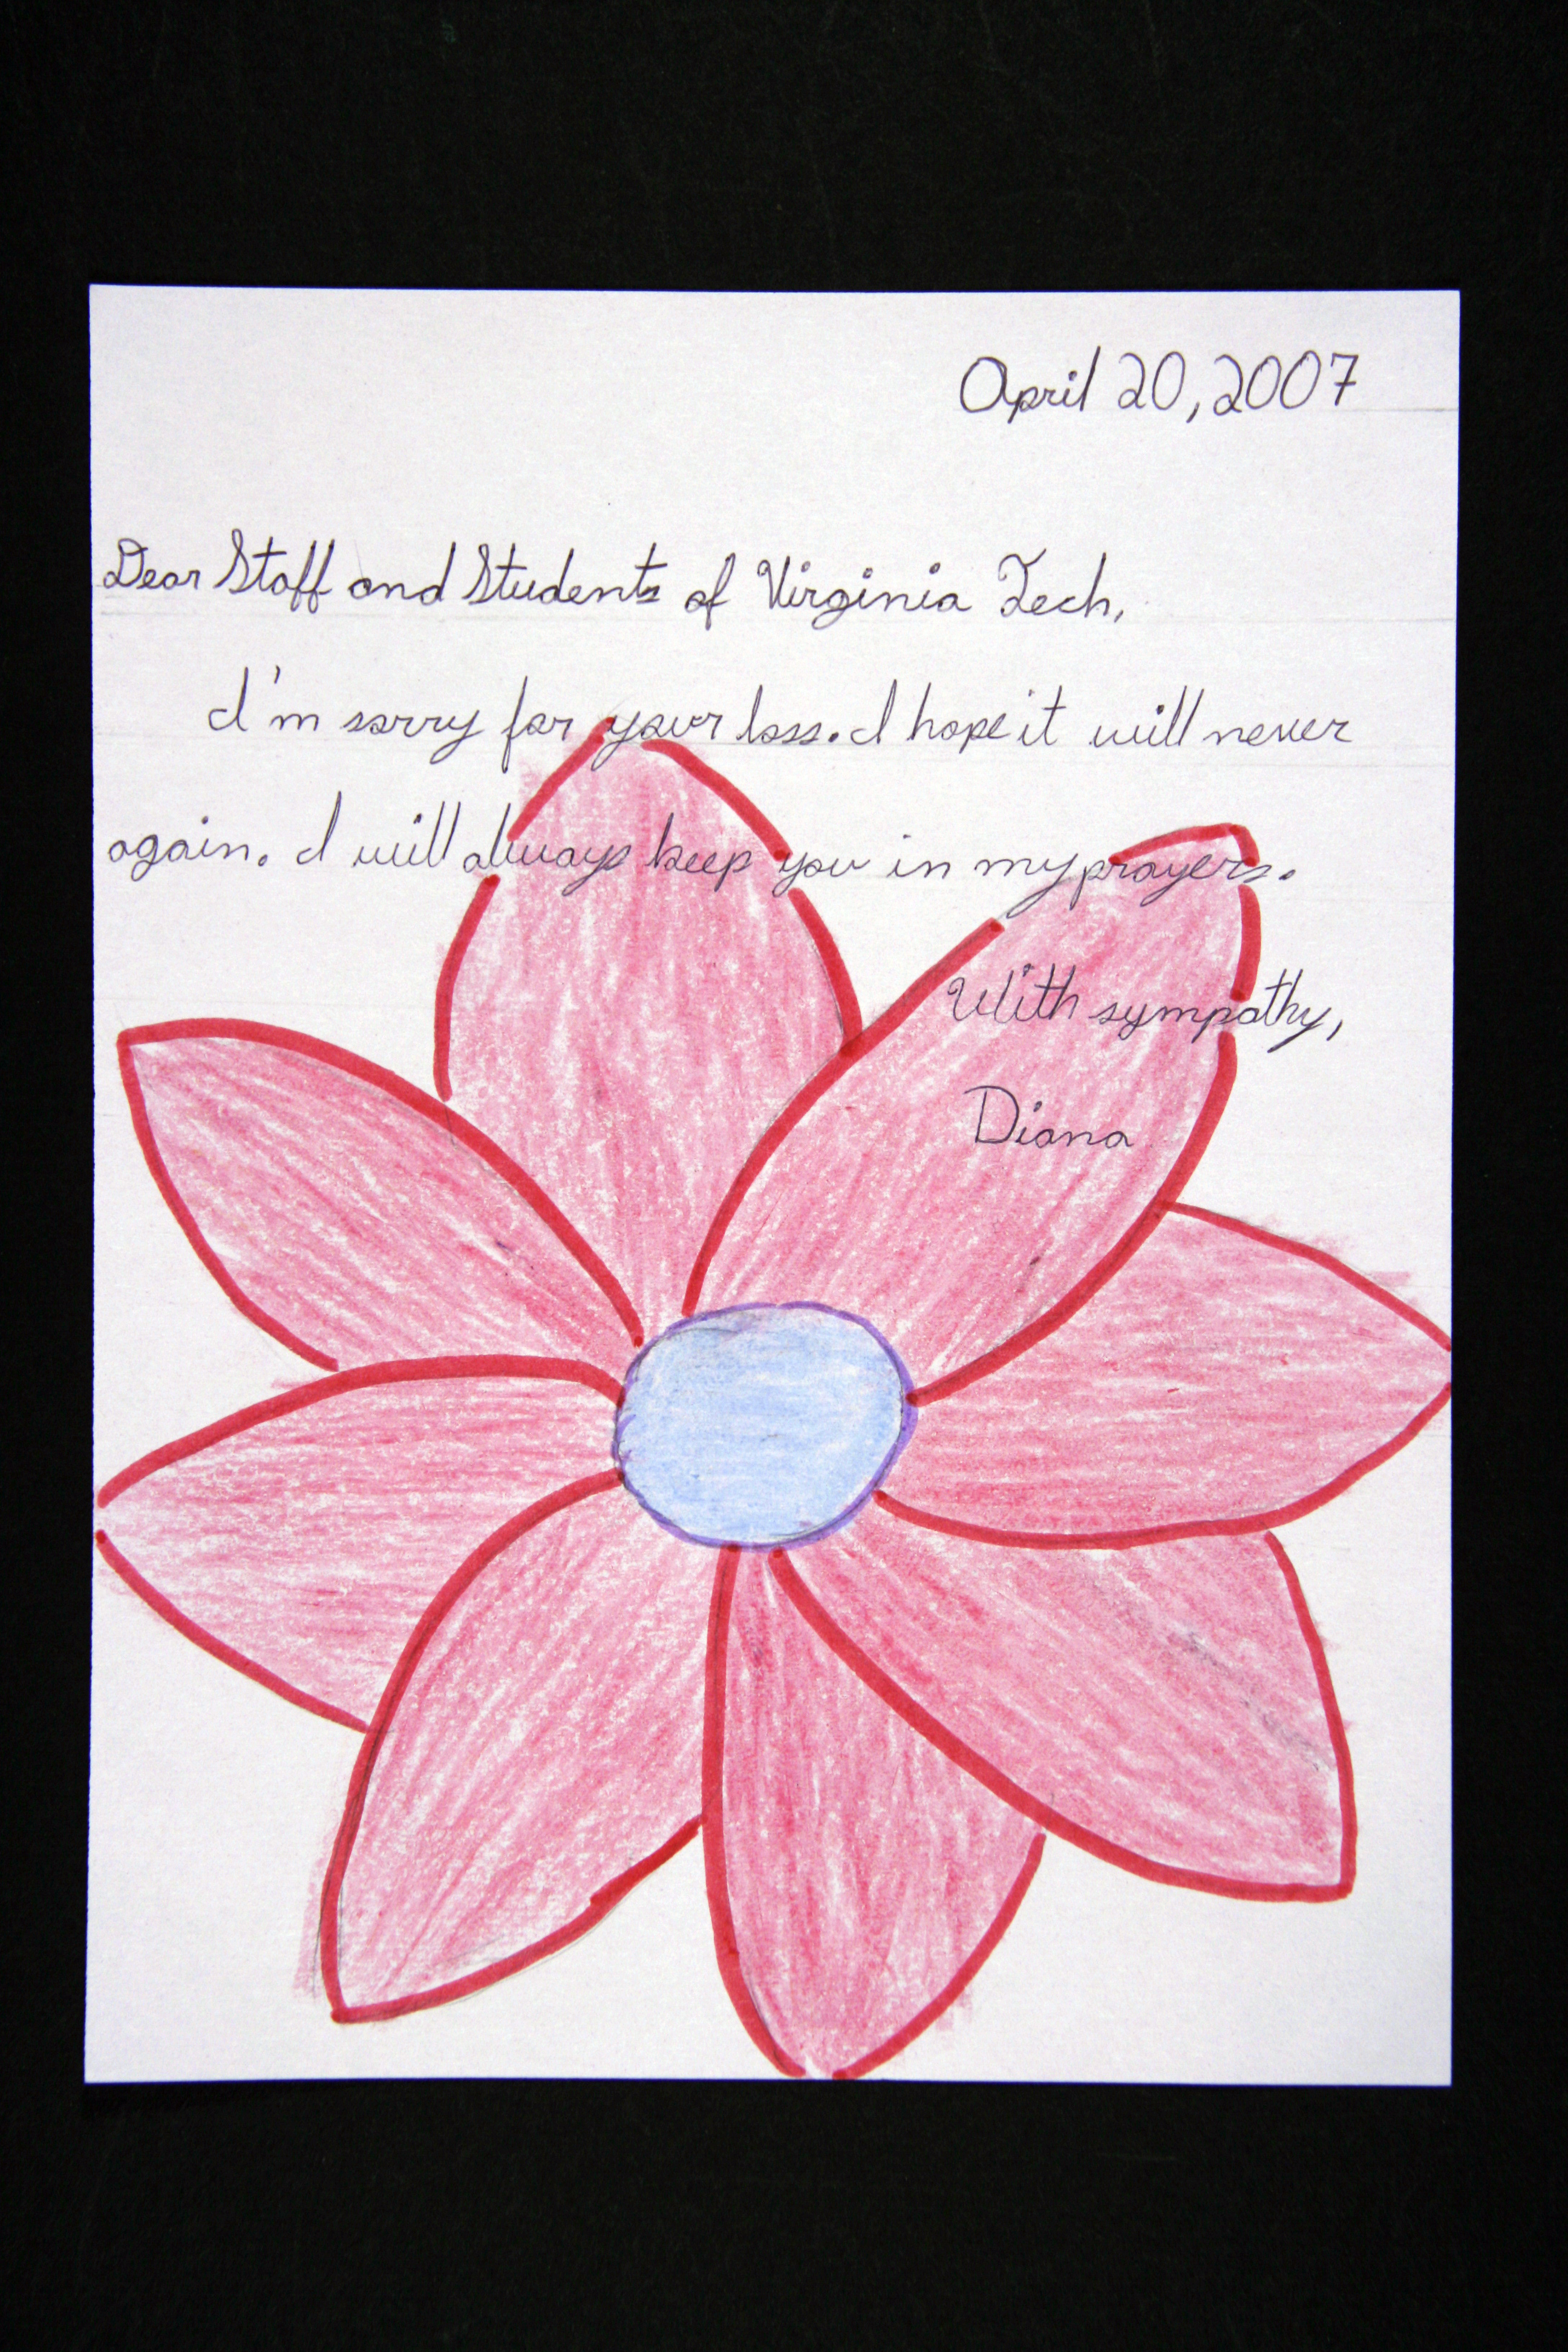 April 20, 2007
Dear Staff and Students of Virginia Tech,
I'm sorry for your loss. I hope it will never
again. I will always keep you in my prayers.
With sympathy,
Diana